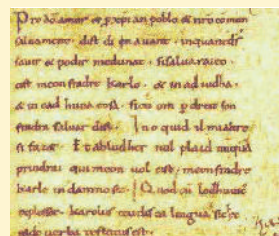 Pro dō amur & p xp̄ian poblo & nr̄o comun
saluament. dist di en auant. inquant dš
sauir & podir medunat. sisaluaraieo
cist meon fradre karlo. & in adiudha.
& in cad huna cosa. sicū om p dreit son
fradra saluar dist. Ino quid il mi altre
si fazet. Et abludher nul plaid nūquā
prindrai qui meon uol cist. meon fradre
karle in damno sit. Quod cū lodhuuic
explesset. karolus teudisca lingua sic
uerba testatus est.